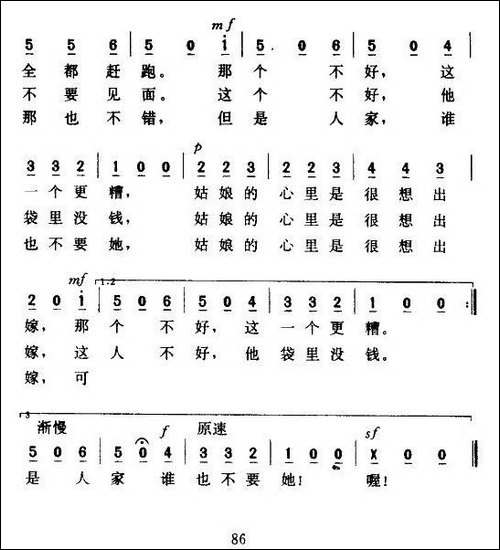 mf
5 5 6 | 5 0 i | 5. 0 6 | 5 0 4 |
全 都 赶 跑。 那 个 不 好， 这
不 要 见 面。 这 个 不 好， 他
那 也 不 错， 但 是 人 家， 谁
p
3 3 2 | 1 0 0 | 2 2 3 | 2 2 3 | 4 4 3 |
一 个 更 糟， 姑 娘 的 心 里 是 很 想 出
袋 里 没 钱， 姑 娘 的 心 里 是 很 想 出
也 不 要 她， 姑 娘 的 心 里 是 很 想 出
mf 1.2
2 0 i | 5 0 6 | 5 0 4 | 3 3 2 | 1 0 0 :||
嫁， 那 个 不 好， 这 一 个 更 糟。
嫁， 这 人 不 好， 他 袋 里 没 钱。
嫁， 可
3
渐慢 f 原速 sf
5 0 6 | 5 0 4 | 3 3 2 | 1 0 0 | X 0 0 ||
是 人 家 谁 也 不 要 她！ 喔！
86